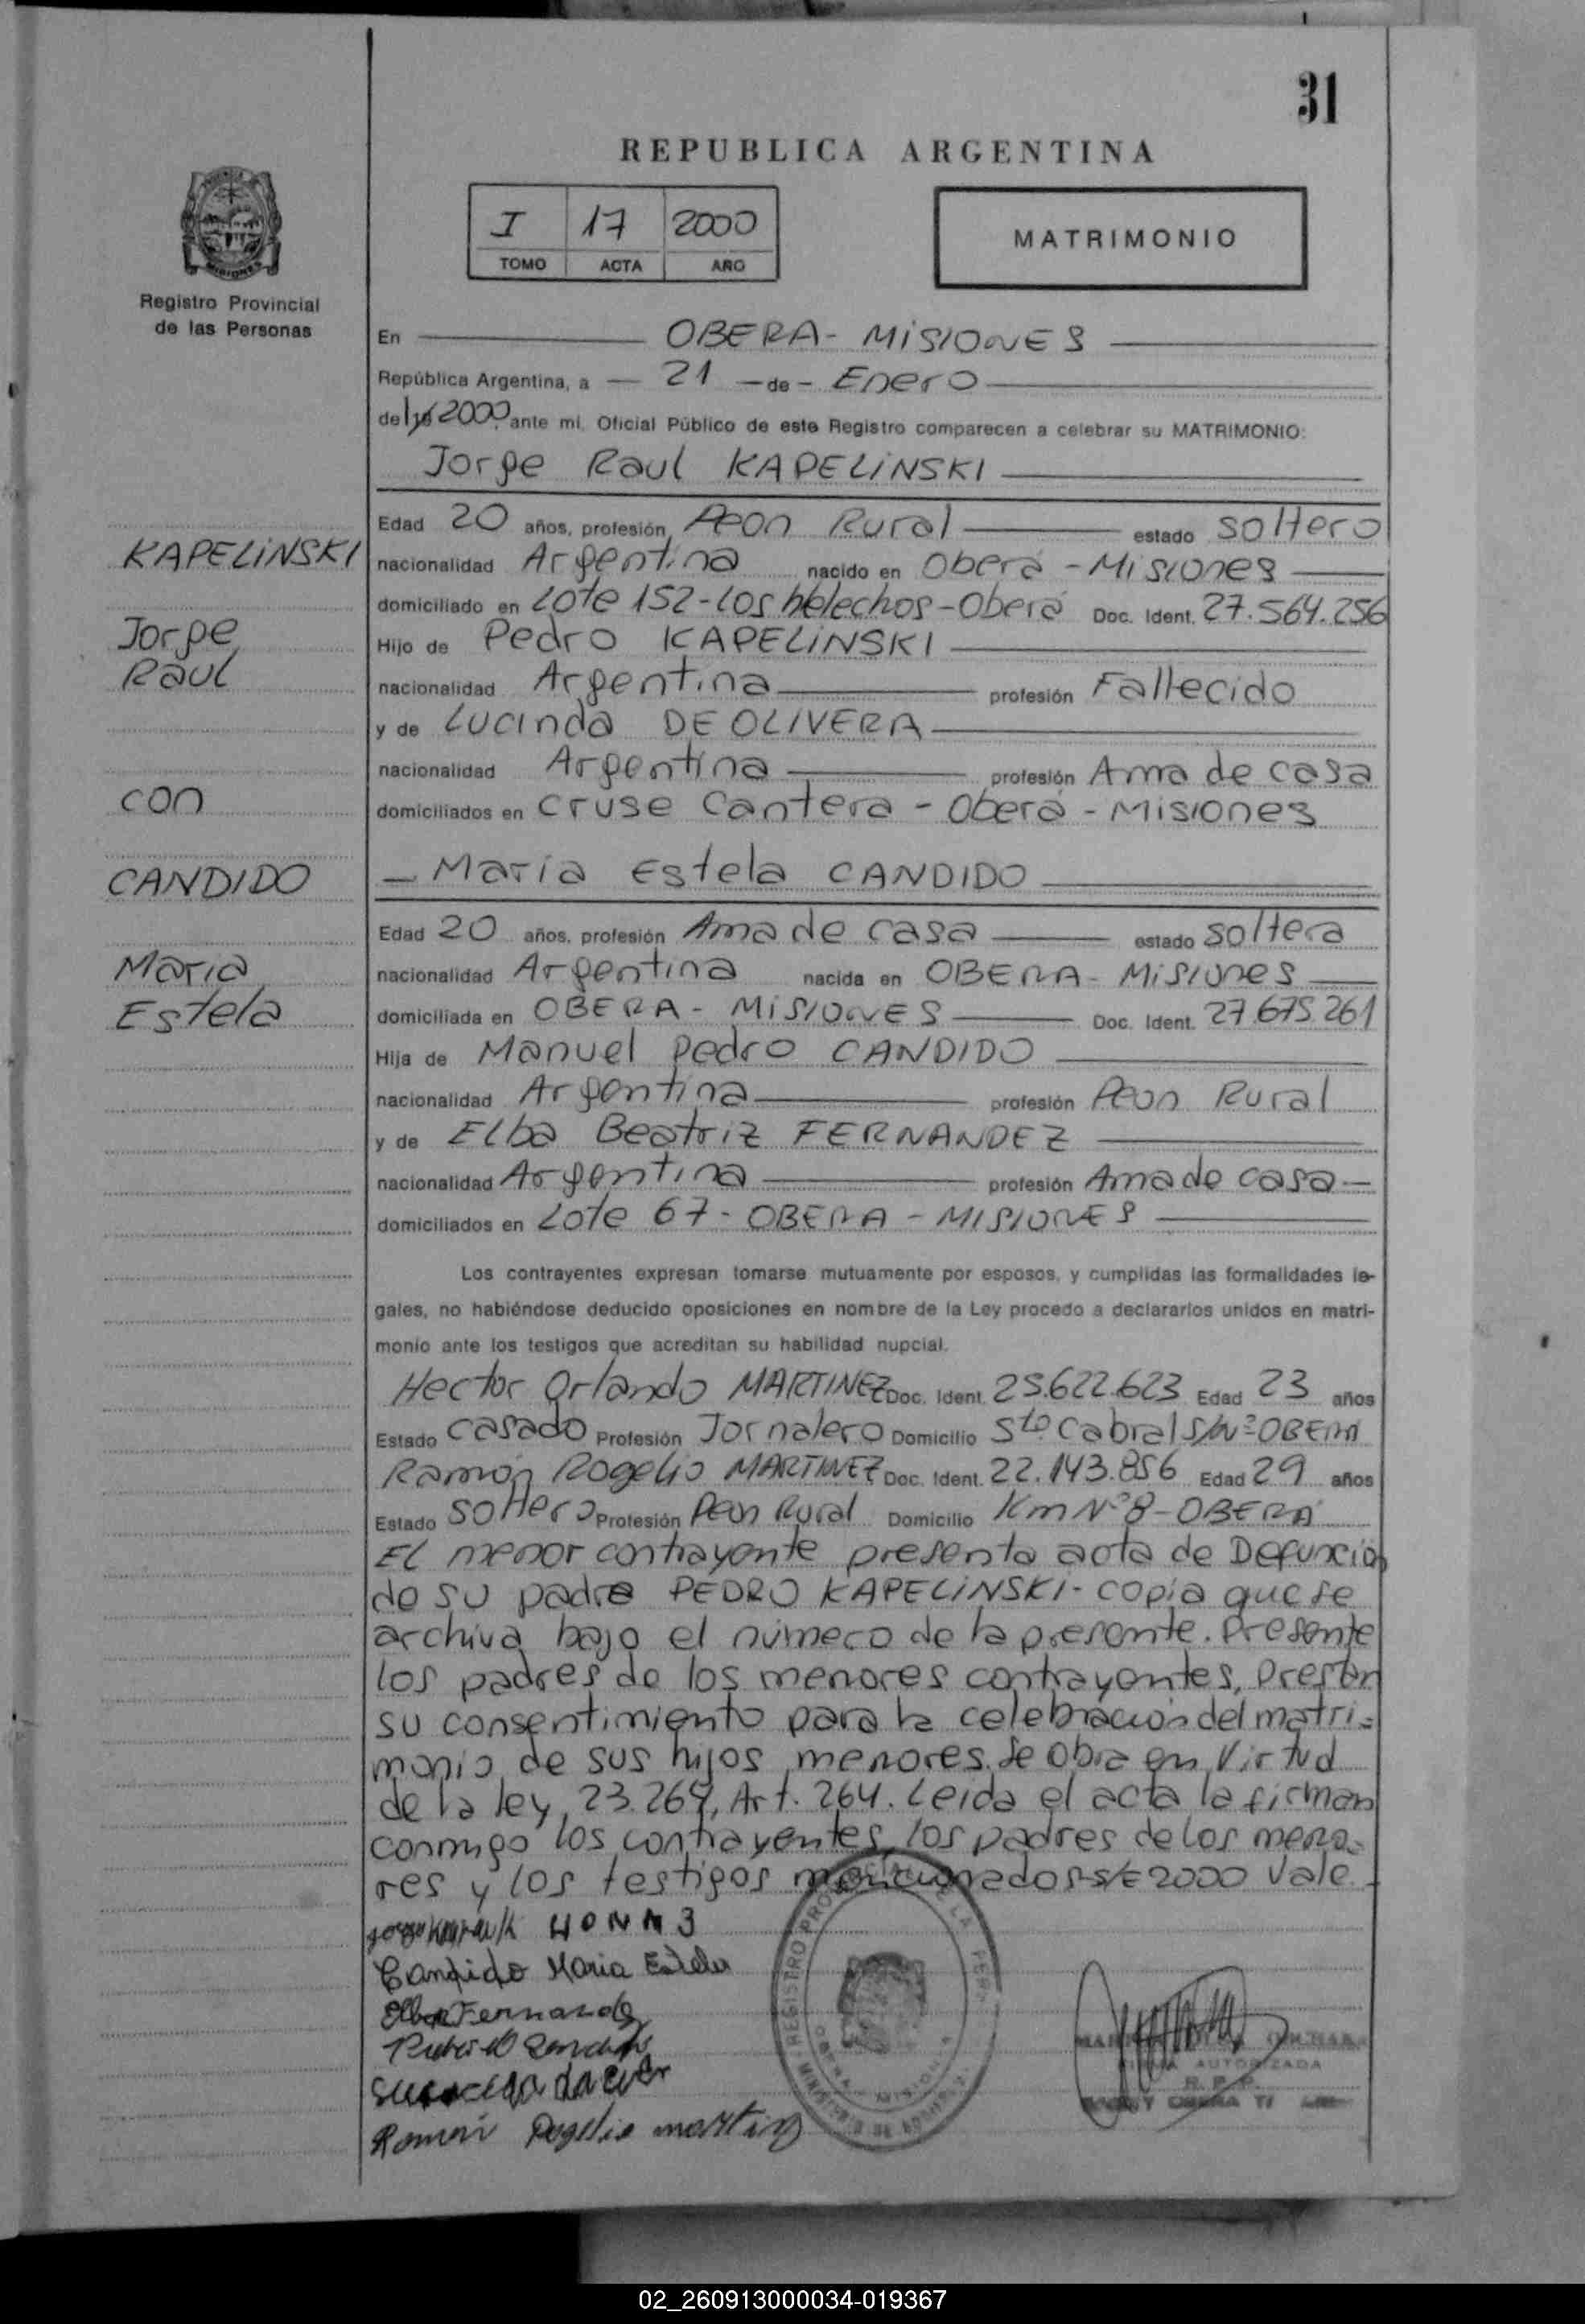 31
REPUBLICA ARGENTINA
I 17 2000
TOMO ACTA AÑO
MATRIMONIO
Registro Provincial
de las Personas
En OBERA - MISIONES
República Argentina, a - 21 - de - Enero
del 2000, ante mí, Oficial Público de este Registro comparecen a celebrar su MATRIMONIO:
Jorge Raul KAPELINSKI
KAPELINSKI
Jorge
Raul
con
CANDIDO
Maria
Estela
Edad 20 años, profesión Peon Rural estado soltero
nacionalidad Argentina nacido en Oberá - Misiones
domiciliado en Lote 152 - Los helechos - Oberá Doc. Ident. 27.564.256
Hijo de Pedro KAPELINSKI
nacionalidad Argentina profesión Fallecido
y de Lucinda DE OLIVERA
nacionalidad Argentina profesión Ama de casa
domiciliados en Cruse Cantera - Oberá - Misiones
- Maria Estela CANDIDO
Edad 20 años, profesión Ama de casa estado soltera
nacionalidad Argentina nacida en OBERA - Misiones
domiciliada en OBERA - MISIONES Doc. Ident. 27.675.261
Hija de Manuel Pedro CANDIDO
nacionalidad Argentina profesión Peon Rural
y de Elba Beatriz FERNANDEZ
nacionalidad Argentina profesión Ama de casa -
domiciliados en Lote 67 - OBERA - MISIONES
Los contrayentes expresan tomarse mutuamente por esposos, y cumplidas las formalidades le-
gales, no habiéndose deducido oposiciones en nombre de la Ley procedo a declararlos unidos en matri-
monio ante los testigos que acreditan su habilidad nupcial.
Hector Orlando MARTINEZ Doc. Ident. 25.622.623 Edad 23 años
Estado casado Profesión Jornalero Domicilio Sto Cabral S/Nº OBERA
Ramón Rogelio MARTINEZ Doc. Ident. 22.143.856 Edad 29 años
Estado soltero Profesión Peon Rural Domicilio Km Nº 8 - OBERA
El menor contrayente presenta acta de Defunción
de su padre PEDRO KAPELINSKI - copia que se
archiva bajo el número de la presente. Presente
los padres de los menores contrayentes, prestan
su consentimiento para la celebración del matri=
monio de sus hijos menores. Se obra en Virtud
de la ley, 23.264, Art. 264. Leida el acta la firman
conmigo los contrayentes, los padres de los meno-
res y los testigos mencionados - S/E 2000 Vale.
Candido Maria Estela
Elba Fernandez
Ramón Rogelio martinez
REGISTRO PROVINCIAL DE LA PERS
AUTORIZADA
02_260913000034-019367